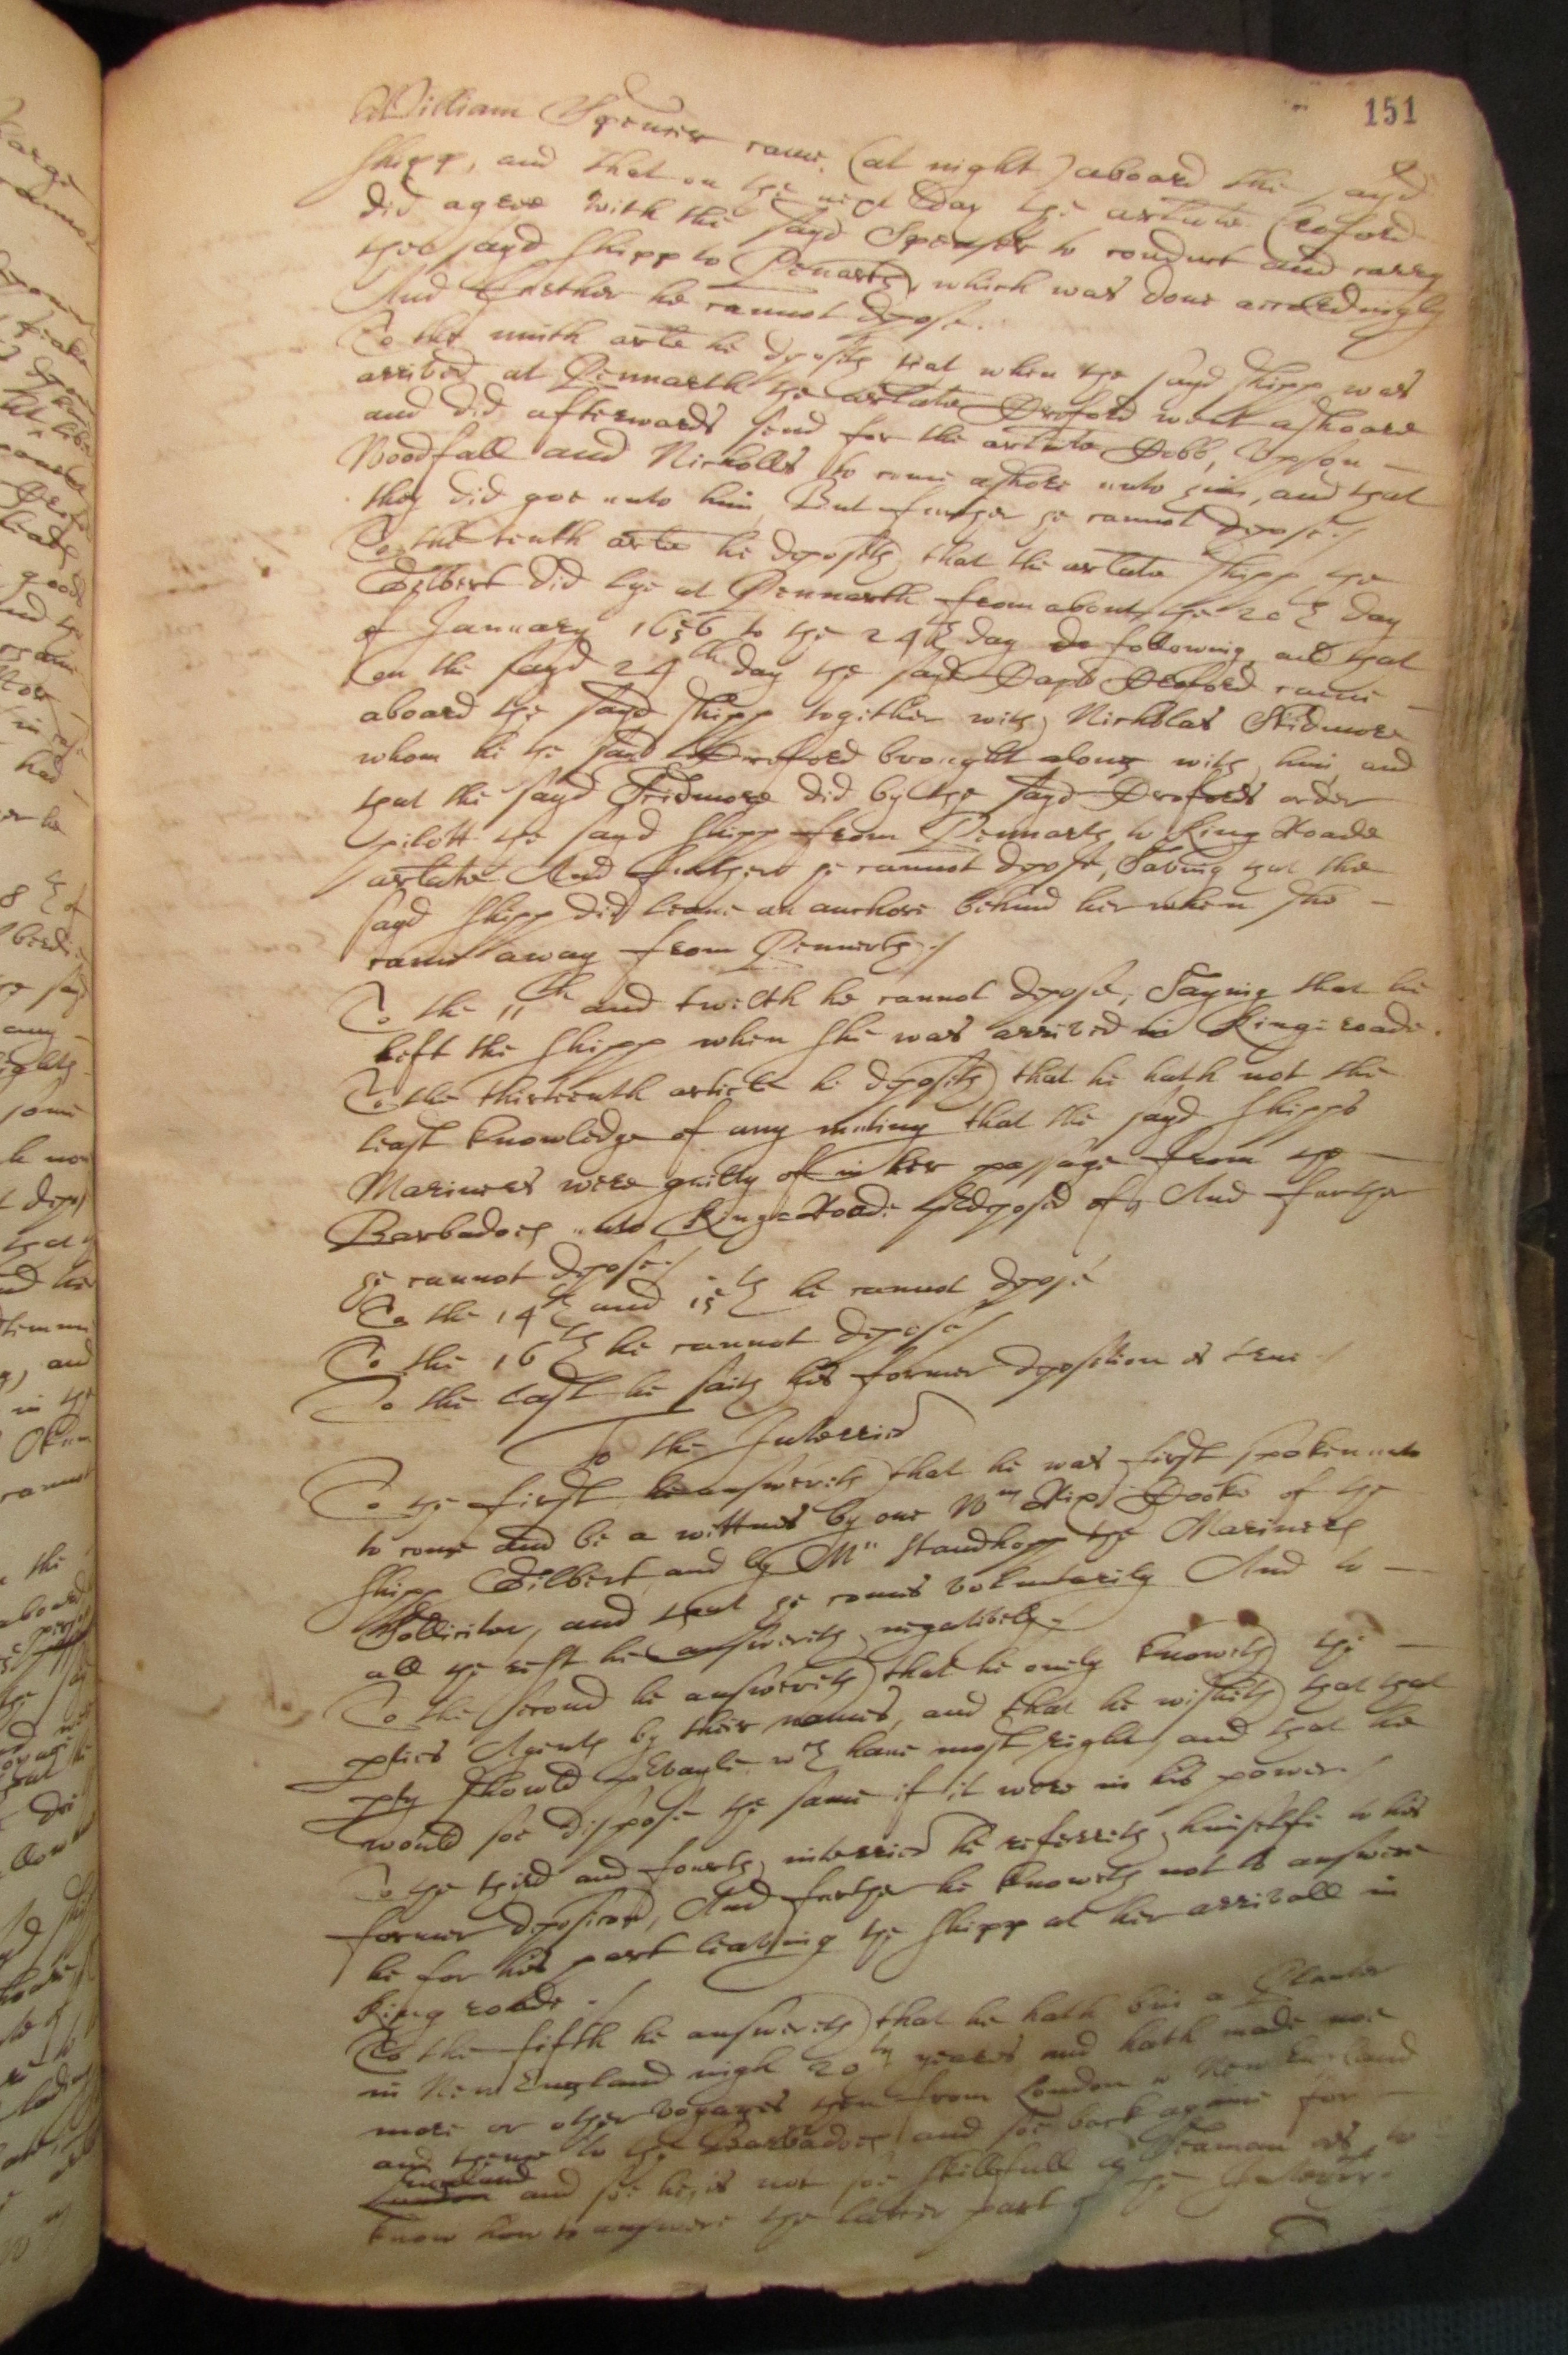 151
William Spenser came (at night) aboard the sayd
shipp, and that on the next day the artlate Croford
did agree with the sayd Spenser to conduct and carry
the sayd shipp to Penarth, which was done accordingly
And further he cannot depose.
To the ninth arle he deposeth that when the sayd shipp was
arrived at Pennarth the artlate Croford went ashoare
and did afterwards send for the artlate Dobb, Upson -
Woodfall and Nicholls to come ashore unto him, and that
they did goe unto him, But further he cannot depose./
To the tenth arle he deposeth that the artlate shipp the
Gilbert did lye at Pennarth from about the 20th day
of January 1656 to the 24th day following, and that
on the sayd 24th day the sayd Capt Croford came -
aboard the sayd shipp together with Nicholas Skidmore
whom he the sayd Croford brought along with him, and
that the sayd Skidmore did by the sayd Crofords order
pilott the sayd shipp from Pennarth to King Roade
artlate And further he cannot depose, Saving that the
sayd shipp did leave an anchore behind her when she -
came away from Pennarth./
To the 11th and twelth he cannot depose, Saying that he
left the shipp when she was arrived in Kinge roade.
To the thirteenth article he deposeth that he hath not the
least knowledge of any mutiny that the sayd shipps
Mariners were guilty of in her passage from the -
Barbadoes unto Kinge Roade predeposed of, And further
he cannot depose./
To the 14th and 15th he cannot depose
To the 16th he cannot depose/
To the last he saith his former deposition is true ./
To the Interries
To the first he answereth that he was first spoken unto
to come and be a wittnes by one Wm Kip Cooke of the
shipp Gilbert and by Mr Standhopp the Mariners
Sollicitor, and that he comes voluntarily And to -
all the rest he answereth negatively./
To the second he answereth that he onely knoweth the -
pties Agents by their names, and that he wisheth that that
pty should prevayle wch have most right, and that he
would soe dispose the same if it were in his power./
To the third and fourth interries he referreth himselfe to his
former deposicon, And further he knoweth not to answere
he for his part leaving the shipp at her arrivall in
King roade ./
To the fifth he answereth that he hath bin a Planter
in New England nigh 20ty yeares and hath made noe
more or other voyages then from London to New England
and thence to the Barbadoes and soe back againe for -
England
London and soe he is not soe skillfull a Seaman as to
know how to answere the latter part of the Interrie.